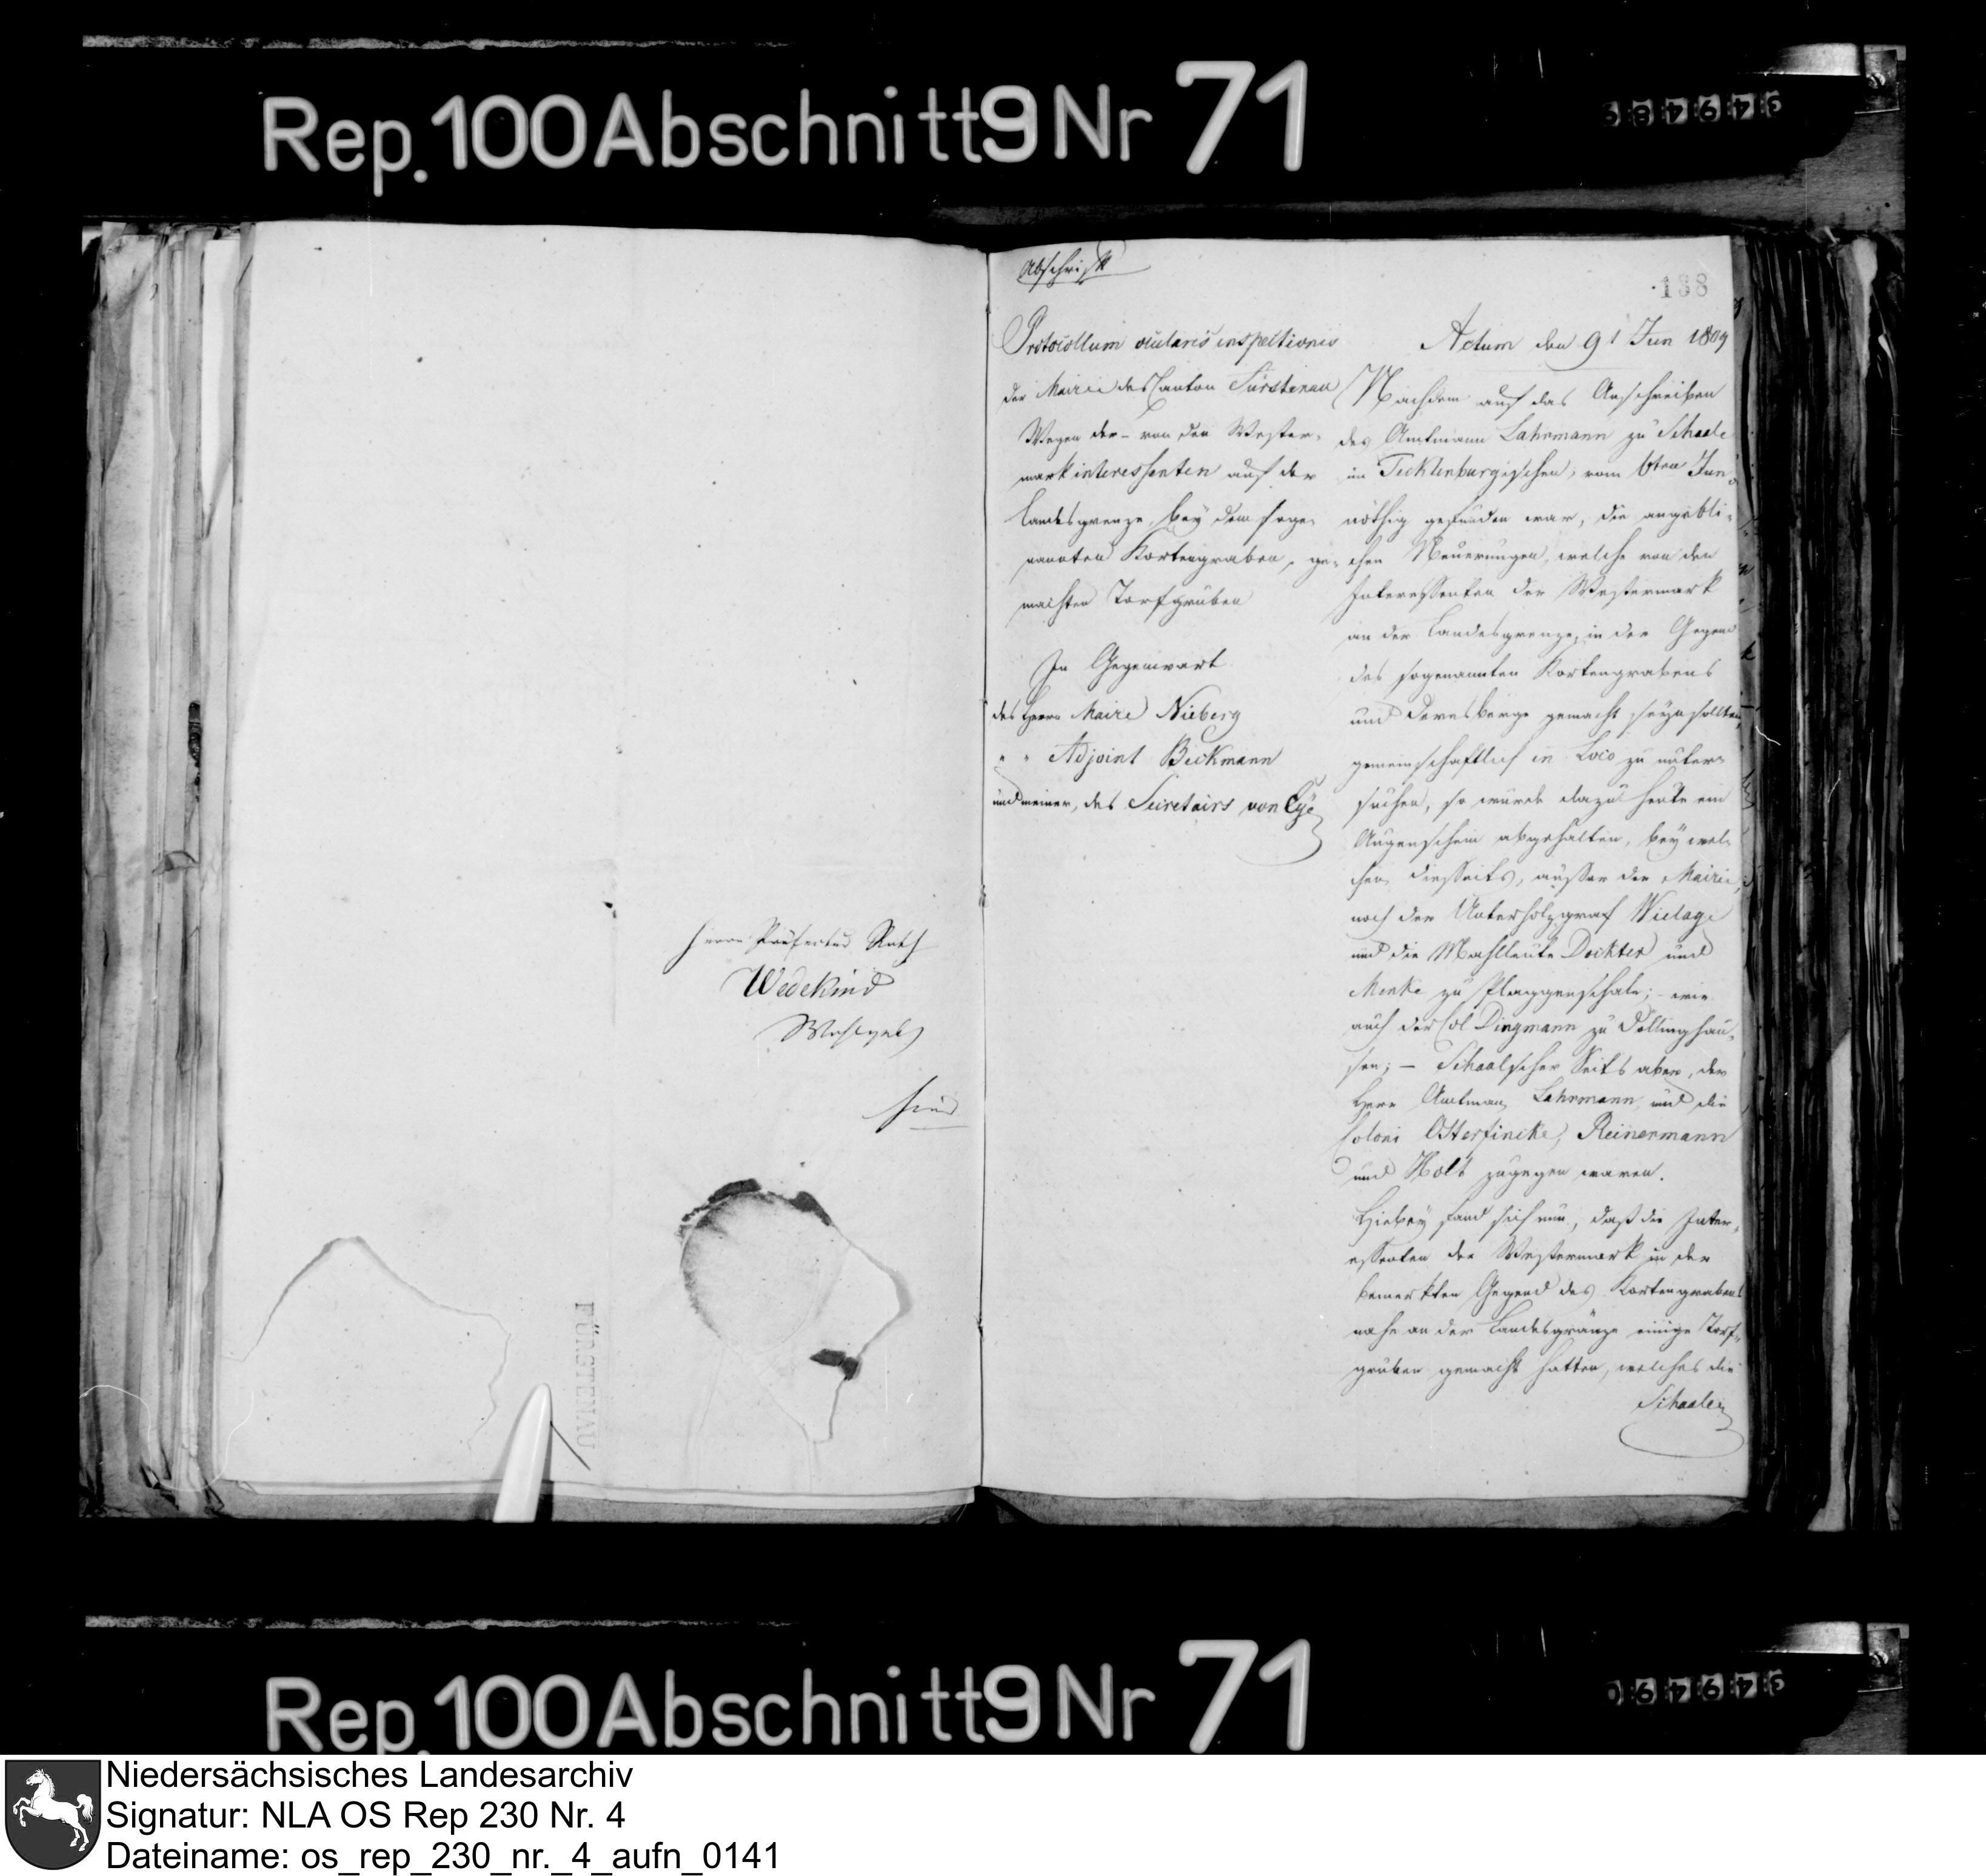 Rep. 100 Abschnitt 9 Nr 71
349489
Herrn Präfectur Rath
Wedekind
hier
FÜRSTENAU
Abschrift
138
Protocollum ocularis inspectionis
der Mairie des Canton Fürstenau
Wegen der - von den Wester-
markinteressenten auf der
Landesgrenze, bey dem soge-
nannten Kortengraben, ge-
machten Torfgruben
In Gegenwart
des Herrn Maire Nieberg
" " Adjoint Beckmann
und meiner, des Secretairs von Eye
Actum den 9t Jun 1809
Nachdem auf das Anschreiben
des Amtmann Lahrmann zu Schaale
im Tecklenburgischen, vom 6ten Jun.
nöthig gefunden war, die angebli-
chen Neuerungen, welche von den
Interessenten der Westermark
an der Landesgrenze, in der Gegend
des sogenannten Kortengrabens
und gemacht seyn sollten,
gemeinschaftlich in Loco zu unter-
suchen, so wurde dazu heute ein
Augenschein abgehalten, bey wel-
chen diesseits, ausser der Mairie,
noch der Unterholzgraf Wielage
und die Mahlleute Dockter und
Menke zu Plaggenschale; - wie
auch der Col Dingmann zu Döllinghau-
sen; - Schaalscher Seits aber, der
Herr Amtmann Lahrmann, und die
Coloni Osterfincke, Reinermann
und Holt zugegen waren.
Hiebey fand sich nun, daß die Inter-
essenten der Westermark in der
bemerkten Gegend des Kortengrabens
nahe an der Landesgränze einige Torf-
gruben gemacht hatten, welches die
Schaaler
Rep. 100 Abschnitt 9 Nr 71
349490
Niedersächsisches Landesarchiv
Signatur: NLA OS Rep 230 Nr. 4
Dateiname: os_rep_230_nr._4_aufn_0141